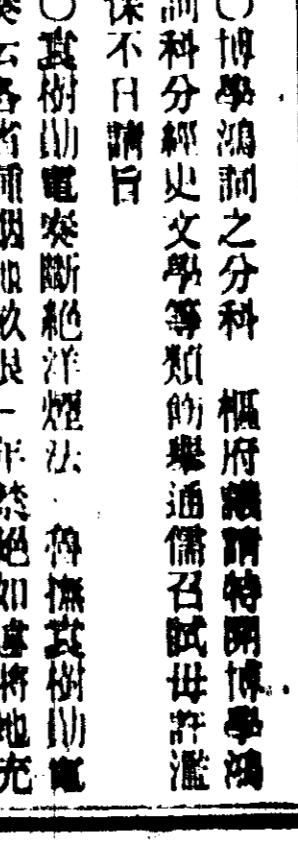 ○博學鴻詞之分科　樞府議請特開博學鴻
詞科分經史文學等類飭舉通儒召試毋許濫
保不日請旨
○袁樹勛電奏斷絕洋煙法　魯撫袁樹勛電
奏云各省種烟如欲限一年禁絕如違將地充